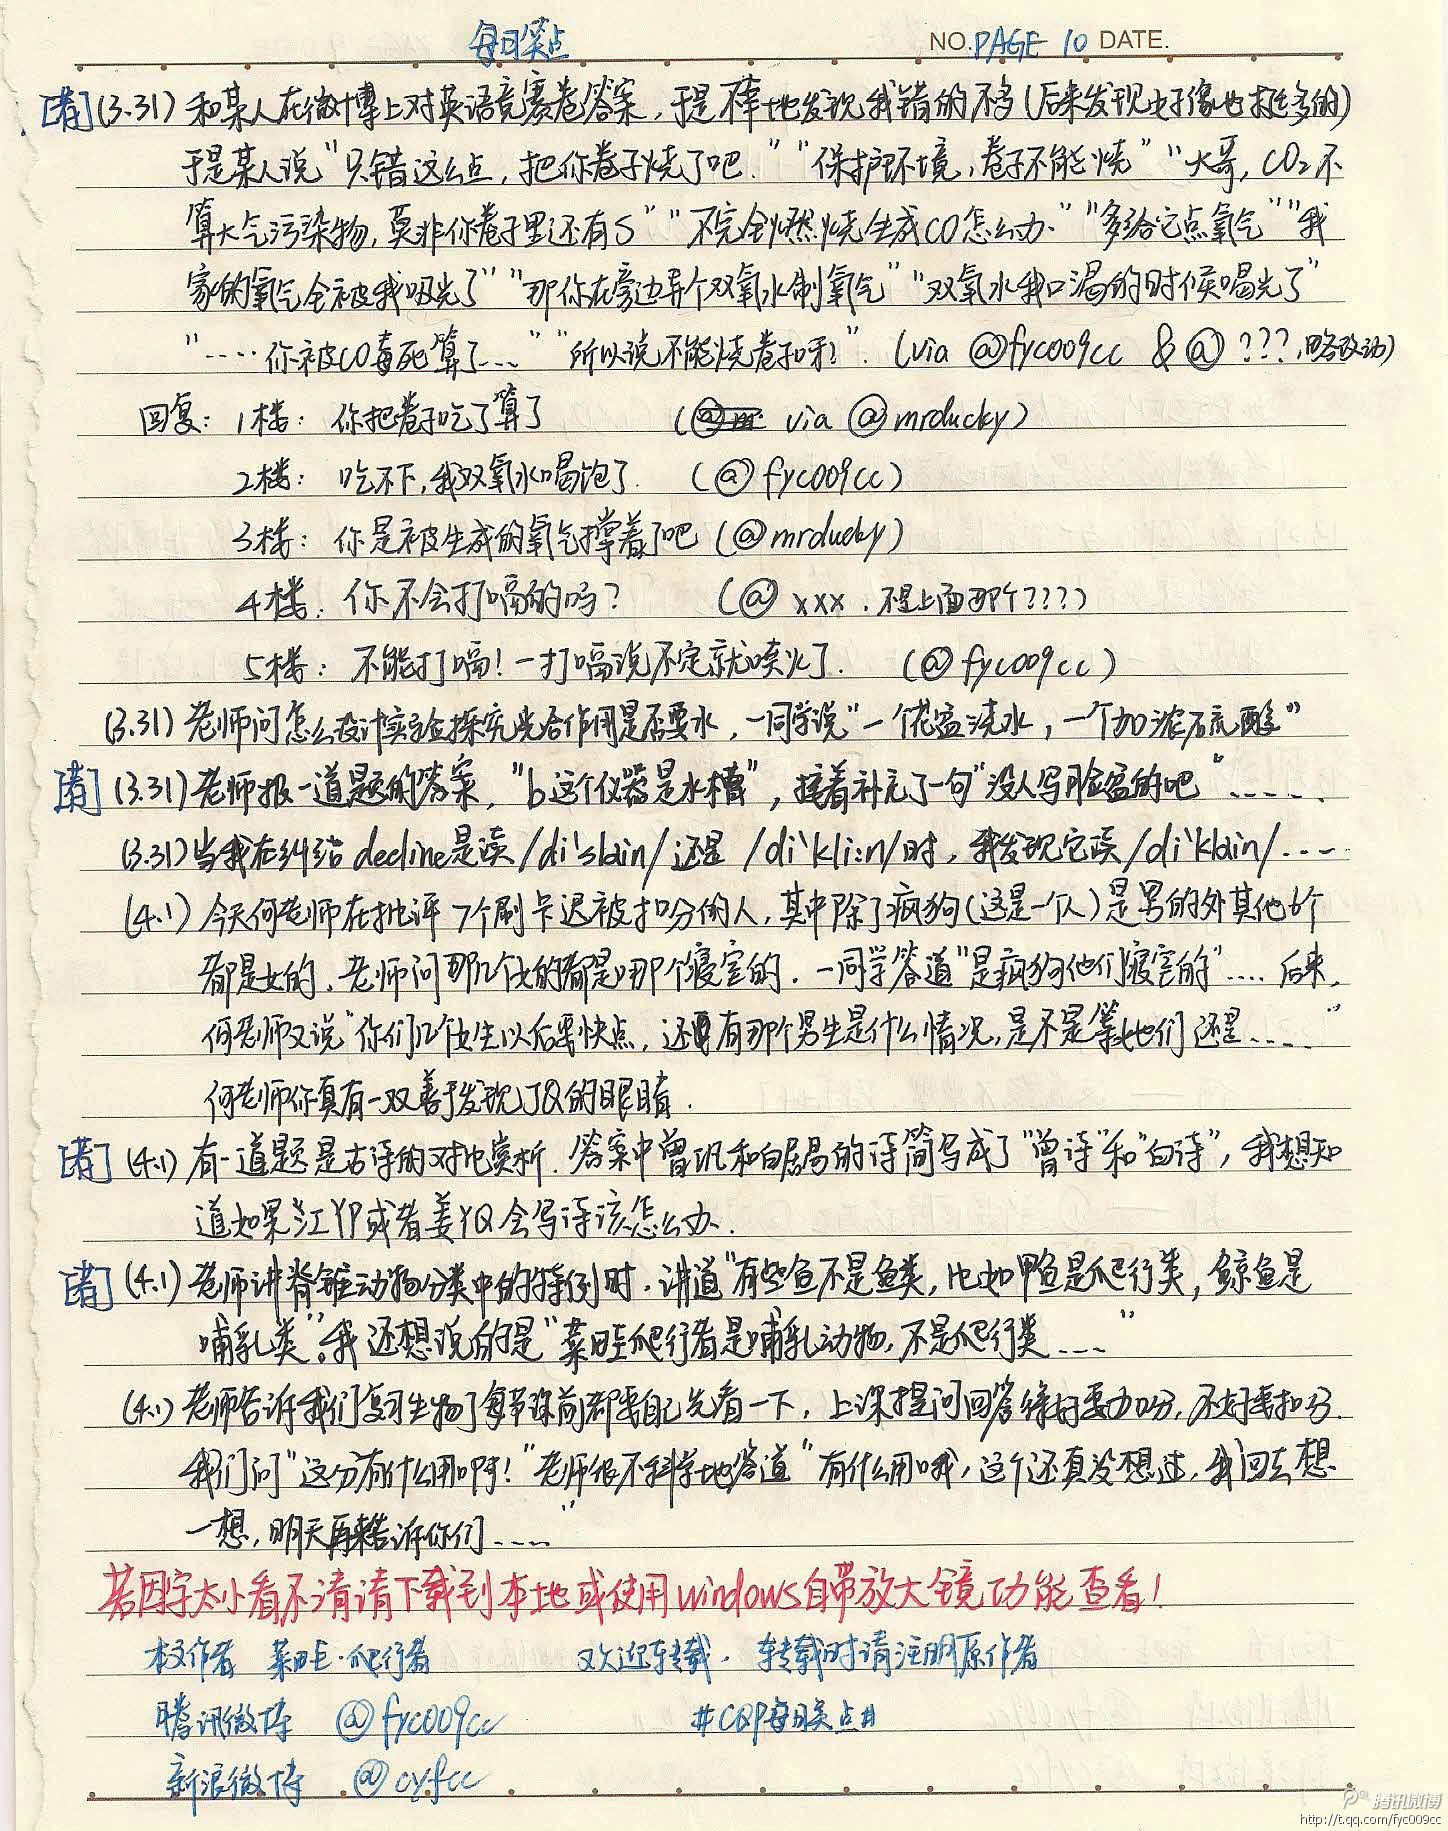 每日笑点
NO. PAGE 10 DATE.
[荐] (3.31) 和某人在微博上对英语竞赛卷答案，于是幸地发现我错的不多(后来发现好像也挺多的)
于是某人说“只错这么点，把你卷子烧了吧.”“保护环境，卷子不能烧”“大哥，CO₂不
算大气污染物，莫非你卷子里还有S”“不完全燃烧生成CO怎么办”“多给它点氧气”“我
家的氧气全被我吸光了”“那你在旁边弄个双氧水制氧气”“双氧水我口渴的时候喝光了”
“……你被CO毒死算了……”“所以说不能烧卷子呀？”. (via @fyc009cc & @???,略改动)
回复: 1楼: 你把卷子吃了算了 (via @mrducky)
2楼: 吃不下,我双氧水喝饱了. (@fyc009cc)
3楼: 你是被生成的氧气撑着了吧 (@mrducky)
4楼: 你不会打嗝的吗? (@xxx.不是上面那个????)
5楼: 不能打嗝!一打嗝说不定就喷火了. (@fyc009cc)
(3.31) 老师问怎么设计实验探究光合作用是否要水，一同学说“一个花盆浇水，一个加浓硫酸”
[荐] (3.31) 老师报一道题的答案，“b这个仪器是水槽”，接着补充了一句“没人写脸盆的吧”……
(3.31) 当我在纠结decline是读/di'slain/还是/di'kli:n/时，我发现它读/di'klain/……
(4.1) 今天何老师在批评7个刷卡迟被扣分的人，其中除了疯狗(这是一个人)是男的外其他6个
都是女的，老师问那几个女的都是哪个寝室的.一同学答道“是疯狗他们寝室的”…. 后来，
何老师又说“你们几个女生以后要快点，还有那个男生是什么情况，是不是等她们还是……”
何老师你真有一双善于发现JQ的眼睛.
[荐] (4.1) 有一道题是古诗的对比赏析.答案中曾巩和白居易的诗简写成了“曾诗”和“白诗”，我想知
道如果江YP或者姜YQ会写诗该怎么办.
[荐] (4.1) 老师讲脊椎动物分类中的特例时.讲道“有些鱼不是鱼类，比如甲鱼是爬行类，鲸鱼是
哺乳类”.我还想说的是“菜田E爬行者是哺乳动物，不是爬行类……”
(4.1) 老师告诉我们复习生物了每节课前都要自己先看一下，上课提问回答得好要加分，不好要扣分.
我们问“这分有什么用啊!”老师很不科学地答道“有什么用哦，这个还真没想过，我回去想
一想，明天再来告诉你们……”
若因字太小看不清请下载到本地或使用windows自带放大镜功能查看!
本文作者 菜田E·爬行者 欢迎转载.转载时请注明原作者
腾讯微博 @fyc009cc #CQP每日笑点#
新浪微博 @cyfcc
腾讯微博
http://t.qq.com/fyc009cc